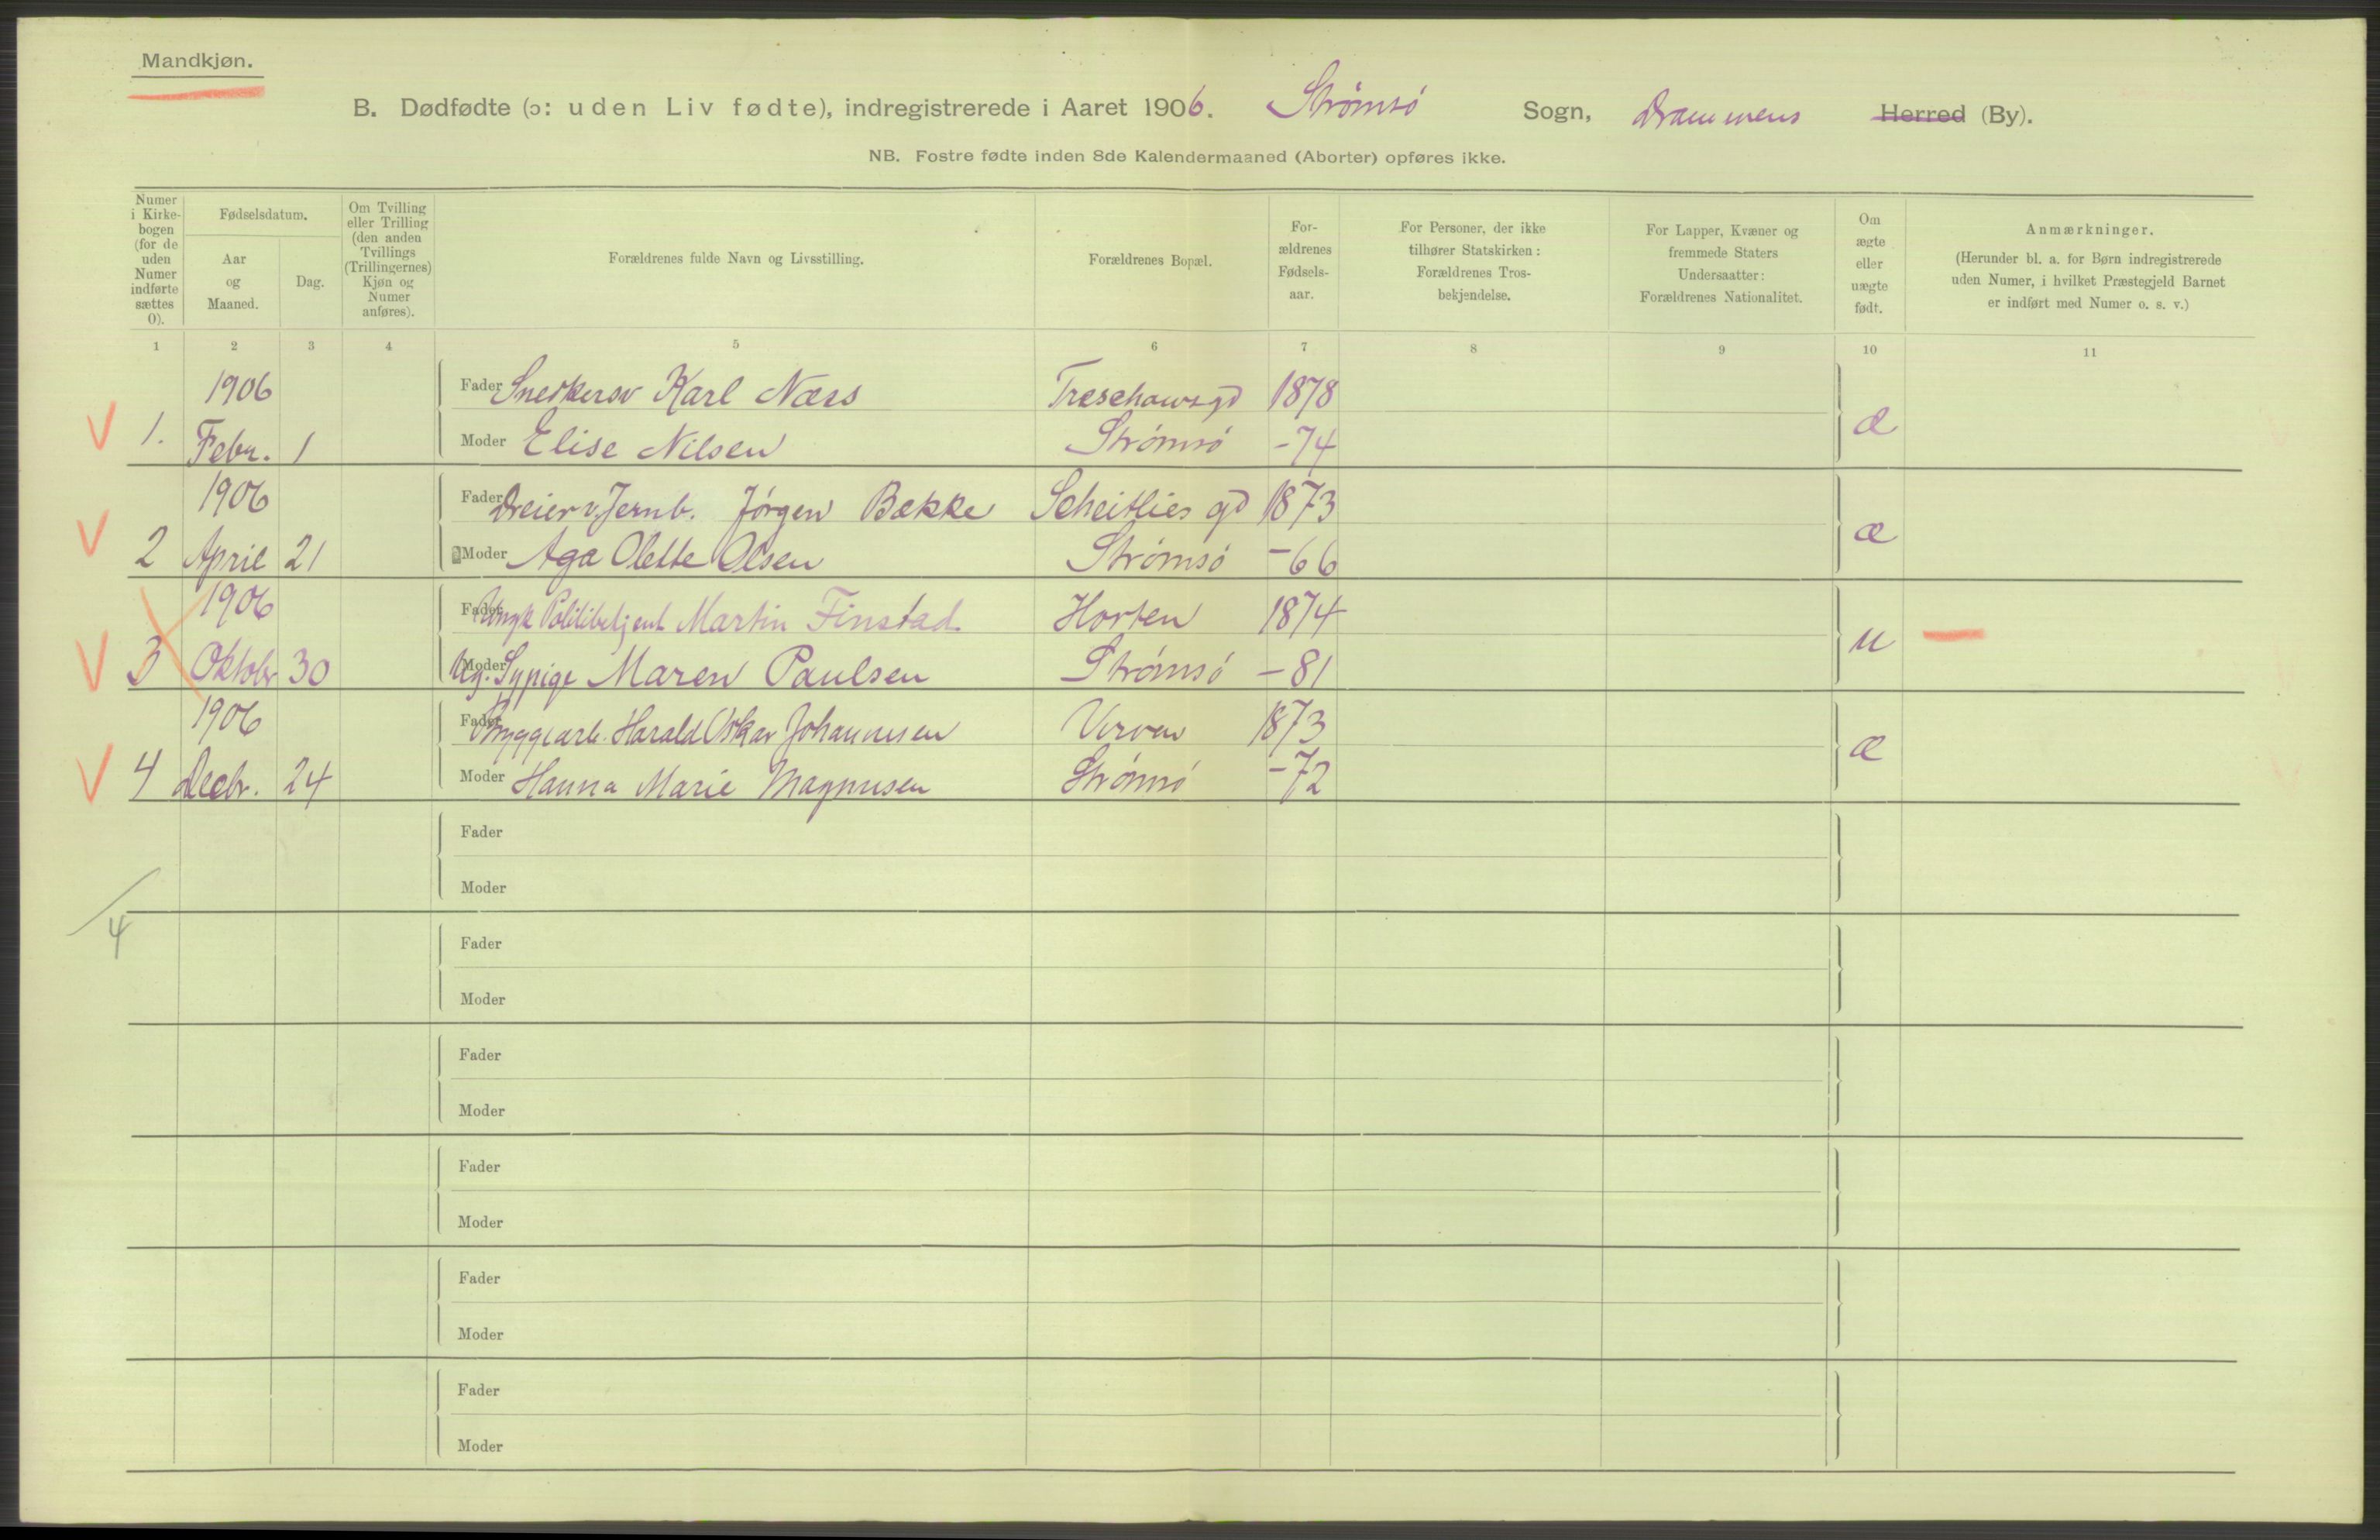 Mandkjøn.
B. Dødfødte (ɔ: uden Liv fødte), indregistrerede i Aaret 1906. Strømsö Sogn, Drammens Herred (By).
NB. Fostre fødte inden 8de Kalendermaaned (Aborter) opføres ikke.
Numer i Kirkebogen (for de uden Numer indførte sættes 0).
Fødselsdatum.
Aar og Maaned.
Dag.
Om Tvilling eller Trilling (den anden Tvillings (Trillingernes) Kjøn og Numer anføres).
Forældrenes fulde Navn og Livsstilling.
Forældrenes Bopæl.
Forældrenes Fødselsaar.
For Personer, der ikke tilhører Statskirken: Forældrenes Trosbekjendelse.
For Lapper, Kvæner og fremmede Staters Undersaatter: Forældrenes Nationalitet.
Om ægte eller uægte født.
Anmærkninger.
(Herunder bl. a. for Børn indregistrerede uden Numer, i hvilket Præstegjeld Barnet er indført med Numer o. s. v.)
1 2 3 4 5 6 7 8 9 10 11
1906 Fader Karl Næss 1878
1. Febr. 1 Moder Elise Nilsen Strømsö -74 æ
1906 Fader Dreier v. Jernb. Jörgen Bække Scheitlies gd 1873
2 April 21 Moder Aga Olette Olsen Strømsö -66 æ
1906 Fader Politibetjent Martin Finstad Horten 1874
3 Oktobr 30 Moder Ug. Sypige Maren Paulsen Strømsö -81 u
1906 Fader Bryggearb. Harald Oskar Johannesen Verven 1873
4 Decbr. 24 Moder Hanna Marie Magnusen Strømsö -72 æ
Fader
Moder
4
Fader
Moder
Fader
Moder
Fader
Moder
Fader
Moder
Fader
Moder